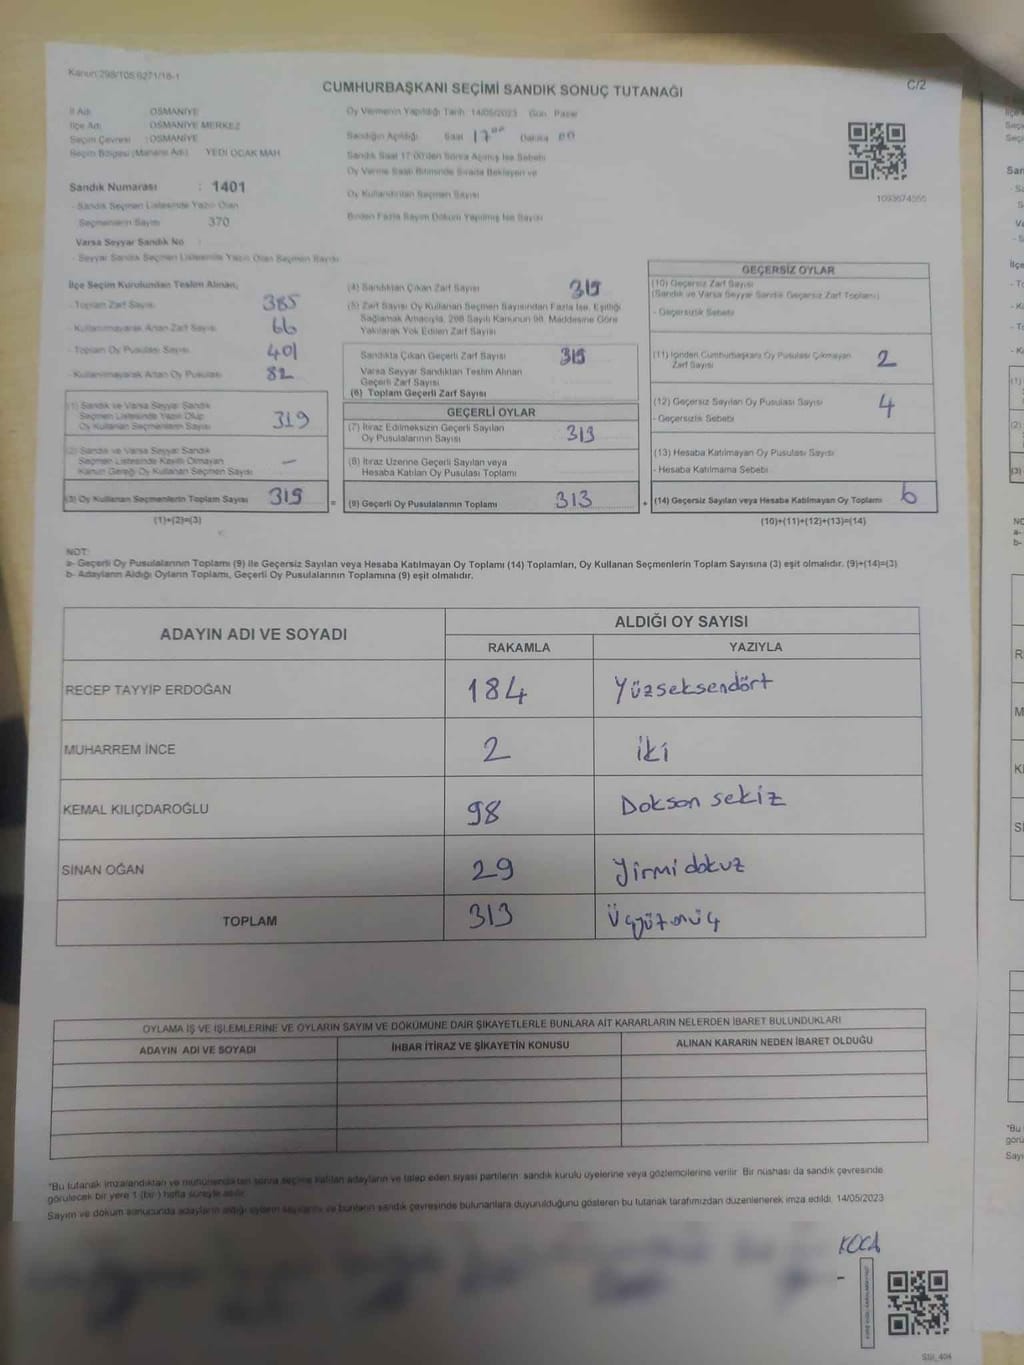 Kanun:298/105.6271/18-1
CUMHURBAŞKANI SEÇİMİ SANDIK SONUÇ TUTANAĞI
C/2
İl Adı: OSMANİYE
İlçe Adı: OSMANİYE MERKEZ
Seçim Çevresi : OSMANİYE
Seçim Bölgesi (Mahalle Adı) YEDİ OCAK MAH
Oy Vermenin Yapıldığı Tarih 14/05/2023 Gün Pazar
Sandığın Açıldığı Saat 17 00 Dakika 00
Sandık Saat 17:00'den Sonra Açılmış İse Sebebi
Oy Verme Saati Bitiminde Sırada Bekleyen ve
Oy Kullandırılan Seçmen Sayısı
Birden Fazla Sayım Döküm Yapılmış İse Sayısı
1093674555
Sandık Numarası : 1401
- Sandık Seçmen Listesinde Yazılı Olan
Seçmenlerin Sayısı 370
Varsa Seyyar Sandık No :
- Seyyar Sandık Seçmen Listesinde Yazılı Olan Seçmen Sayısı
İlçe Seçim Kurulundan Teslim Alınan;
- Toplam Zarf Sayısı 385
- Kullanılmayarak Artan Zarf Sayısı 66
- Toplam Oy Pusulası Sayısı 401
- Kullanılmayarak Artan Oy Pusulası 82
(1) Sandık ve Varsa Seyyar Sandık
Seçmen Listesinde Yazılı Olup
Oy Kullanan Seçmenlerin Sayısı 319
(2) Sandık ve Varsa Seyyar Sandık
Seçmen Listesinde Kayıtlı Olmayan
Kanun Gereği Oy Kullanan Seçmen Sayısı —
(3) Oy Kullanan Seçmenlerin Toplam Sayısı 319
(1)+(2)=(3)
(4) Sandıktan Çıkan Zarf Sayısı 319
(5) Zarf Sayısı Oy Kullanan Seçmen Sayısından Fazla İse, Eşitliği
Sağlamak Amacıyla, 298 Sayılı Kanunun 98. Maddesine Göre
Yakılarak Yok Edilen Zarf Sayısı
Sandıkta Çıkan Geçerli Zarf Sayısı 319
Varsa Seyyar Sandıktan Teslim Alınan
Geçerli Zarf Sayısı
(6) Toplam Geçerli Zarf Sayısı
GEÇERLİ OYLAR
(7) İtiraz Edilmeksizin Geçerli Sayılan
Oy Pusulalarının Sayısı 313
(8) İtiraz Üzerine Geçerli Sayılan veya
Hesaba Katılan Oy Pusulası Toplamı
= (9) Geçerli Oy Pusulalarının Toplamı 313
GEÇERSİZ OYLAR
(10) Geçersiz Zarf Sayısı
(Sandık ve Varsa Seyyar Sandık Geçersiz Zarf Toplamı)
- Geçersizlik Sebebi
(11) İçinden Cumhurbaşkanı Oy Pusulası Çıkmayan
Zarf Sayısı 2
(12) Geçersiz Sayılan Oy Pusulası Sayısı 4
- Geçersizlik Sebebi
(13) Hesaba Katılmayan Oy Pusulası Sayısı
- Hesaba Katılmama Sebebi
+ (14) Geçersiz Sayılan veya Hesaba Katılmayan Oy Toplamı 6
(10)+(11)+(12)+(13)=(14)
NOT:
a- Geçerli Oy Pusulalarının Toplamı (9) ile Geçersiz Sayılan veya Hesaba Katılmayan Oy Toplamı (14) Toplamları, Oy Kullanan Seçmenlerin Toplam Sayısına (3) eşit olmalıdır. (9)+(14)=(3)
b- Adayların Aldığı Oyların Toplamı, Geçerli Oy Pusulalarının Toplamına (9) eşit olmalıdır.
ADAYIN ADI VE SOYADI
ALDIĞI OY SAYISI
RAKAMLA YAZIYLA
RECEP TAYYİP ERDOĞAN 184 Yüzseksendört
MUHARREM İNCE 2 iki
KEMAL KILIÇDAROĞLU 98 Dokson sekiz
SİNAN OĞAN 29 Yirmi dokuz
TOPLAM 313 Üçyüzonüç
OYLAMA İŞ VE İŞLEMLERİNE VE OYLARIN SAYIM VE DÖKÜMÜNE DAİR ŞİKAYETLERLE BUNLARA AİT KARARLARIN NELERDEN İBARET BULUNDUKLARI
ADAYIN ADI VE SOYADI İHBAR İTİRAZ VE ŞİKAYETİN KONUSU ALINAN KARARIN NEDEN İBARET OLDUĞU
*Bu tutanak imzalandıktan ve mühürlendikten sonra seçime katılan adayların ve talep eden siyasi partilerin sandık kurulu üyelerine veya gözlemcilerine verilir. Bir nüshası da sandık çevresinde
görülecek bir yere 1 (bir) hafta süreyle asılır.
Sayım ve döküm sonucunda adayların aldığı oyların sayılarını ve bunların sandık çevresinde bulunanlara duyurulduğunu gösteren bu tutanak tarafımızdan düzenlenerek imza edildi. 14/05/2023
KOCA
SSI_404